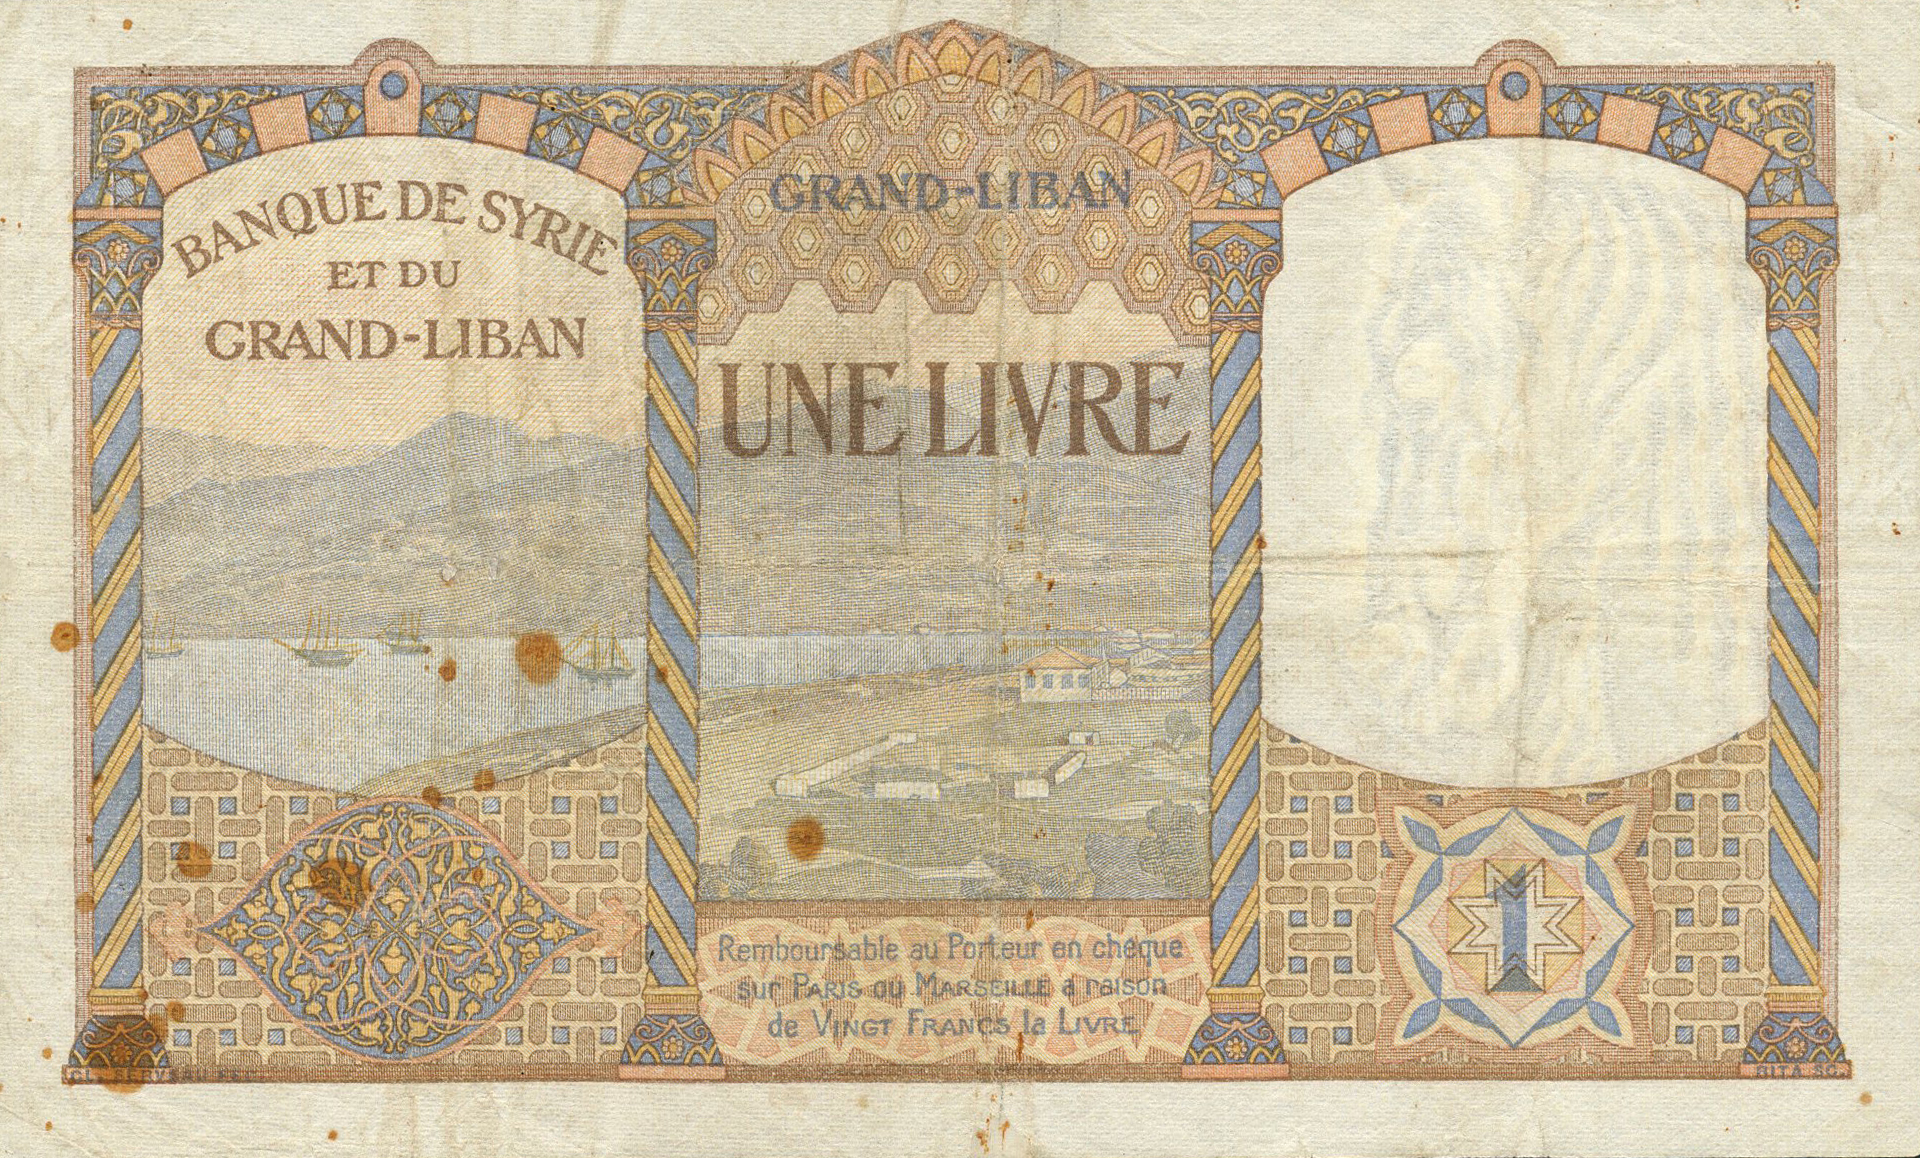 BANQUE DE SYRIE
ET DU
GRAND-LIBAN
GRAND-LIBAN
UNE LIVRE
Remboursable au Porteur en chèque
sur PARIS ou MARSEILLE à raison
de VINGT FRANCS la LIVRE
1
CL. SERVEAU FEC.
RITA SC.